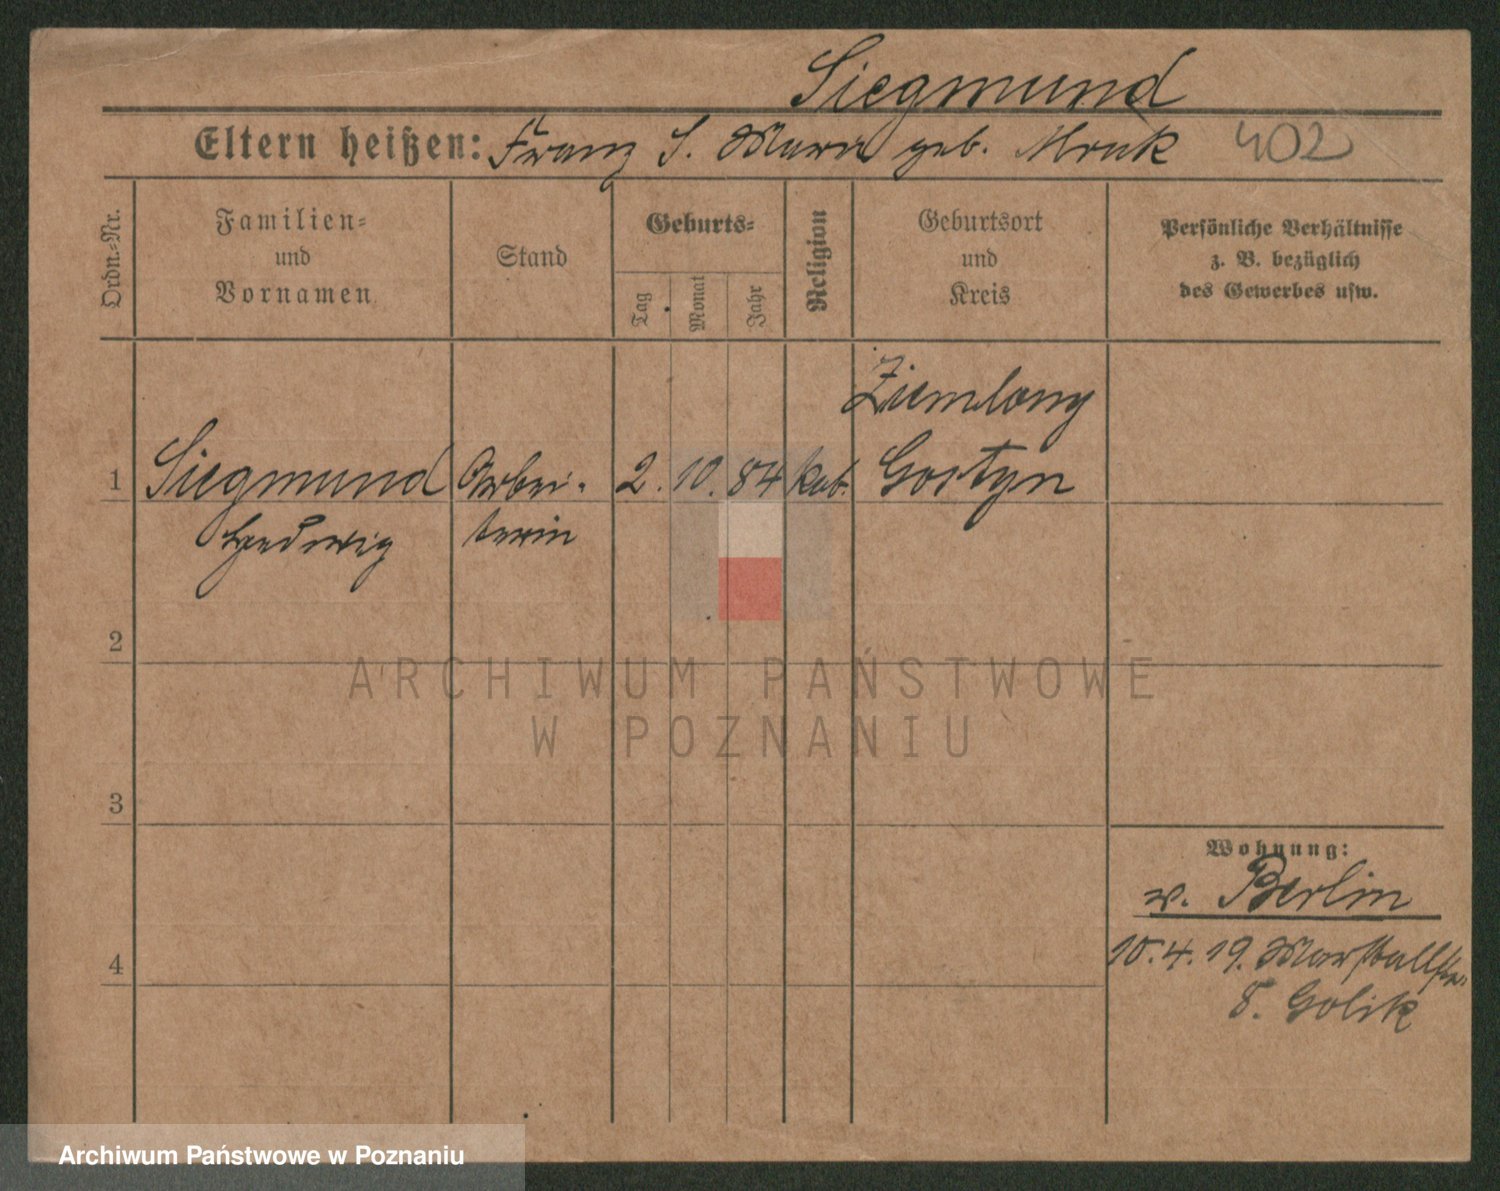 Siegmund
Eltern heißen: Franz S. Maria geb. Mruk 402
Ordn.-Nr.
Familien-
und
Vornamen
Stand
Geburts-
Tag
Monat
Jahr
Religion
Geburtsort
und
Kreis
Persönliche Verhältnisse
z. B. bezüglich
des Gewerbes usw.
Ziemlong
1 Siegmund Arbei- 2. 10. 84 kat. Gostyn
Hedwig terin
2
3
4
Wohnung:
v. Berlin
10.4.19. Marstallstr.
8. Golik
ARCHIWUM PAŃSTWOWE
W POZNANIU
Archiwum Państwowe w Poznaniu